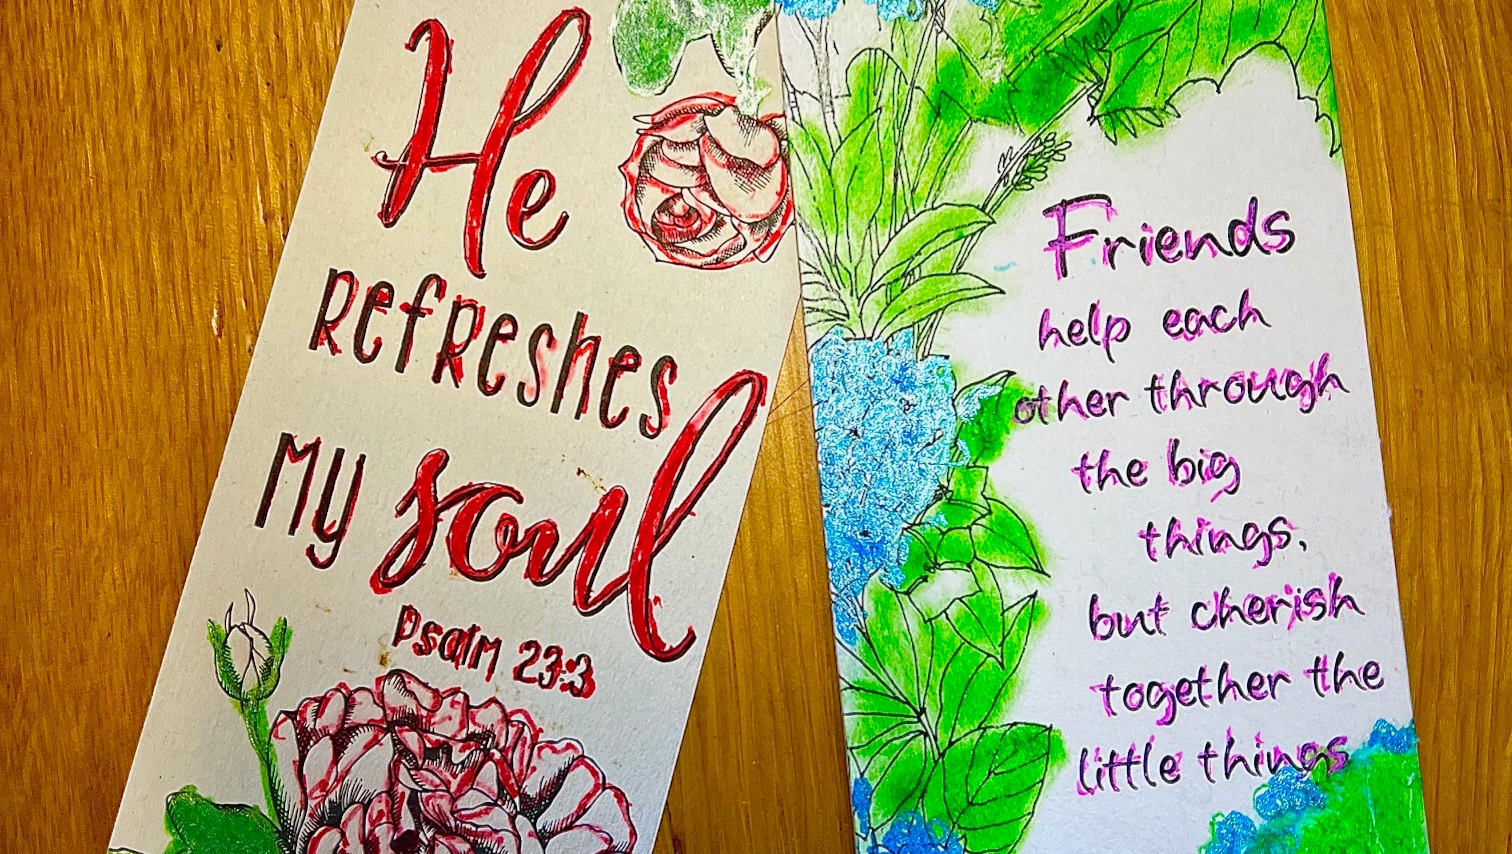 He
Refreshes
My soul
Psalm 23:3
Friends
help each
other through
the big
things.
but cherish
together the
little things